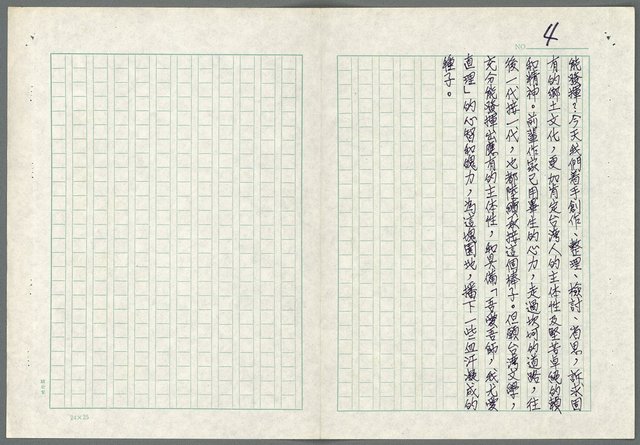 NO. 4
能發揮？今天我們着手創作、整理、檢討、省思，訴求固
有的鄉土文化，更加肯定台灣人的主體性及堅苦卓絕的韻
和精神。前輩作家已用畢生的心力，走過坎坷的道路，往
後一代接一代，也都陸續承接這個棒子。但願台灣文學，
充分能發揮出應有的主體性，和具備「吾愛吾師，我尤愛
真理」的心智和魄力，為這塊園地，播下一些血汗凝成的
種子。
24×25